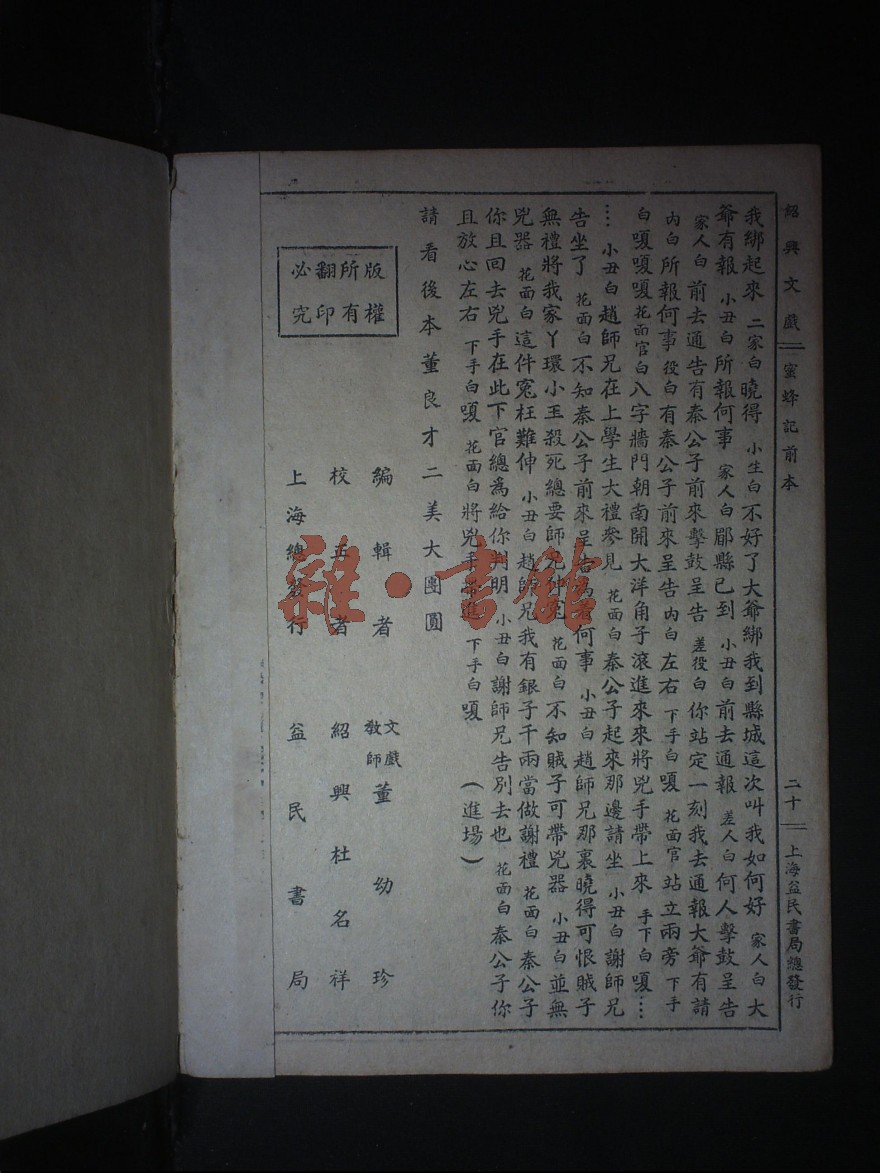 紹興文戲 蜜蜂記前本 二十 上海益民書局總發行
我綁起來 二家白曉得 小生白不好了大爺綁我到縣城這次叫我如何好 家人白大
爺有報 小丑白所報何事 家人白郿縣已到 小丑白前去通報 差人白何人擊鼓呈告
家人白前去通告有秦公子前來擊鼓呈告 差役白你站定一刻我去通報大爺有請
內白所報何事 役白有秦公子前來呈告 內白左右 下手白嗄 花面官站立兩旁 下手
白嗄嗄嗄 花面官白八字牆門朝南開大洋角子滾進來來將兇手帶上來 手下白嗄……
… 小丑白趙師兄在上學生大禮參見 花面白秦公子起來那邊請坐 小丑白謝師兄
告坐了 花面白不知秦公子前來呈告為著何事 小丑白趙師兄那裏曉得可恨賊子
無禮將我家丫環小玉殺死總要師兄伸冤 花面白不知賊子可帶兇器 小丑白並無
兇器 花面白這件寃枉難伸 小丑白趙師兄我有銀子千兩當做謝禮 花面白秦公子
你且回去兇手在此下官總為給你判明 小丑白謝師兄告別去也 花面白秦公子你
且放心左右 下手白嗄 花面白將兇手帶進 下手白嗄 (進場)
請看後本董良才二美大團圓
版權
所有
翻印
必究
編輯者 文戲教師董幼珍
校正者 紹興杜名祥
上海總發行 益民書局
雜·書館